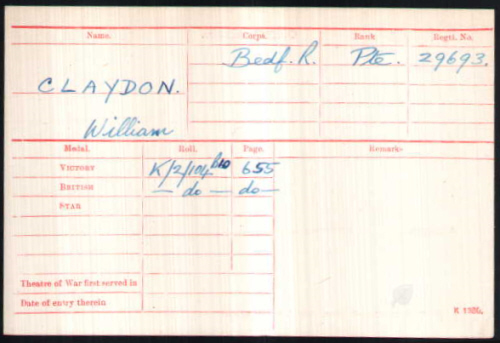 Name. Corps. Rank Regtl. No.
Bedf. R. Pte. 29693.
CLAYDON.
William
Medal. Roll. Page. Remarks
VICTORY K/2/104 B10 655
BRITISH — do — do —
STAR
Theatre of War first served in
Date of entry therein
K 1380.